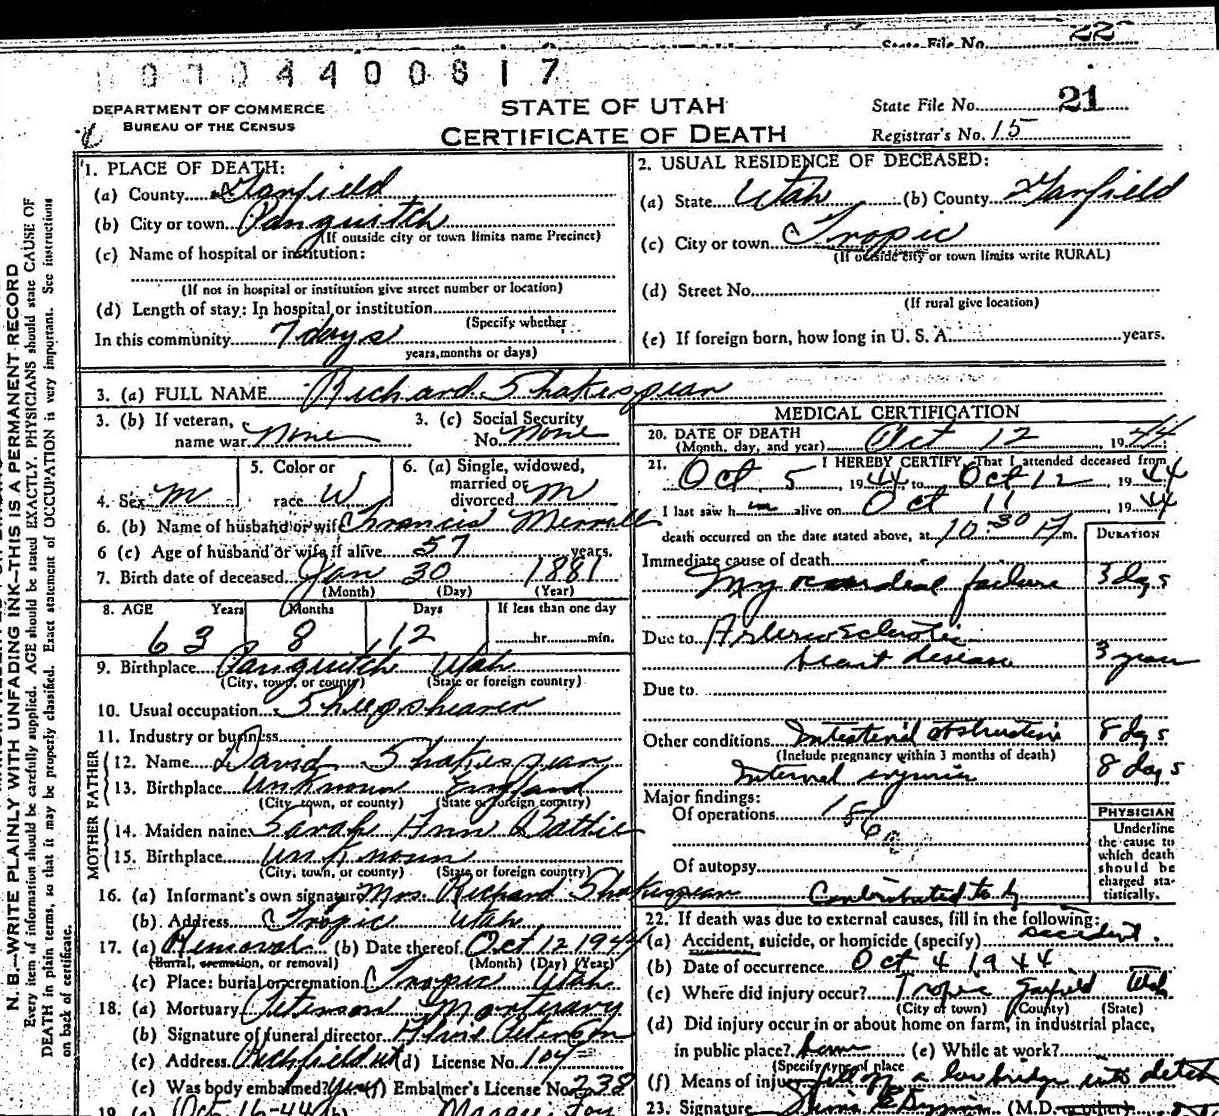 State File No. 22
0704400817
DEPARTMENT OF COMMERCE
BUREAU OF THE CENSUS
STATE OF UTAH
CERTIFICATE OF DEATH
State File No. 21
Registrar's No. 15
N. B.—WRITE PLAINLY WITH UNFADING INK—THIS IS A PERMANENT RECORD
Every item of information should be carefully supplied. AGE should be stated EXACTLY. PHYSICIANS should state CAUSE OF
DEATH in plain terms, so that it may be properly classified. Exact statement of OCCUPATION is very important. See instructions
on back of certificate.
1. PLACE OF DEATH:
(a) County Garfield
(b) City or town Panguitch
(If outside city or town limits name Precinct)
(c) Name of hospital or institution:
(If not in hospital or institution give street number or location)
(d) Length of stay: In hospital or institution
(Specify whether
In this community 7 days
years, months or days)
2. USUAL RESIDENCE OF DECEASED:
(a) State Utah (b) County Garfield
(c) City or town Tropic
(If outside city or town limits write RURAL)
(d) Street No.
(If rural give location)
(e) If foreign born, how long in U. S. A. years.
3. (a) FULL NAME Richard Shakespear
3. (b) If veteran,
name war None
3. (c) Social Security
No. None
4. Sex M
5. Color or
race W
6. (a) Single, widowed,
married or
divorced M
6. (b) Name of husband or wife Francis Merrall
6 (c) Age of husband or wife if alive 57 years.
7. Birth date of deceased Jan 30 1881
(Month) (Day) (Year)
8. AGE Years Months Days If less than one day
63 8 12 hr. min.
9. Birthplace Panguitch Utah
(City, town, or county) (State or foreign country)
10. Usual occupation Sheepshearer
11. Industry or business
FATHER
12. Name David Shakespear
13. Birthplace Unknown England
(City, town, or county) (State or foreign country)
MOTHER
14. Maiden name Sarah Ann Battie
15. Birthplace Unknown
(City, town, or county) (State or foreign country)
16. (a) Informant's own signature Mrs. Richard Shakespear
(b) Address Tropic Utah
17. (a) Removal (b) Date thereof Oct 12 1944
(Burial, cremation, or removal) (Month) (Day) (Year)
(c) Place: burial or cremation Tropic Utah
18. (a) Mortuary Peterson Mortuary
(b) Signature of funeral director Peterson
(c) Address Richfield Ut (d) License No. 104
(e) Was body embalmed? yes (f) Embalmer's License No. 238
19. (a) Oct 16-44 (b)
MEDICAL CERTIFICATION
20. DATE OF DEATH
(Month, day, and year) Oct 12, 1944
21. I HEREBY CERTIFY, That I attended deceased from
Oct 5, 1944, to Oct 12, 1944
I last saw him alive on Oct 11, 1944
death occurred on the date stated above, at 10:30 P. m.
DURATION
Immediate cause of death
Myocardial failure 3 dys
Due to Arteriosclerotic
heart disease 3 years
Due to
Other conditions Intestinal obstruction 8 dys
(Include pregnancy within 3 months of death)
Internal injuries 8 days
Major findings:
Of operations 186a
Of autopsy
PHYSICIAN
Underline
the cause to
which death
should be
charged sta-
tistically.
Contributed to by
22. If death was due to external causes, fill in the following:
(a) Accident, suicide, or homicide (specify) accident.
(b) Date of occurrence Oct 4 1944
(c) Where did injury occur? Tropic Garfield Utah
(City or town) (County) (State)
(d) Did injury occur in or about home on farm, in industrial place,
in public place? (e) While at work?
(Specify type of place
(f) Means of injury fell off a low bridge into ditch
23. Signature (M.D. or other)